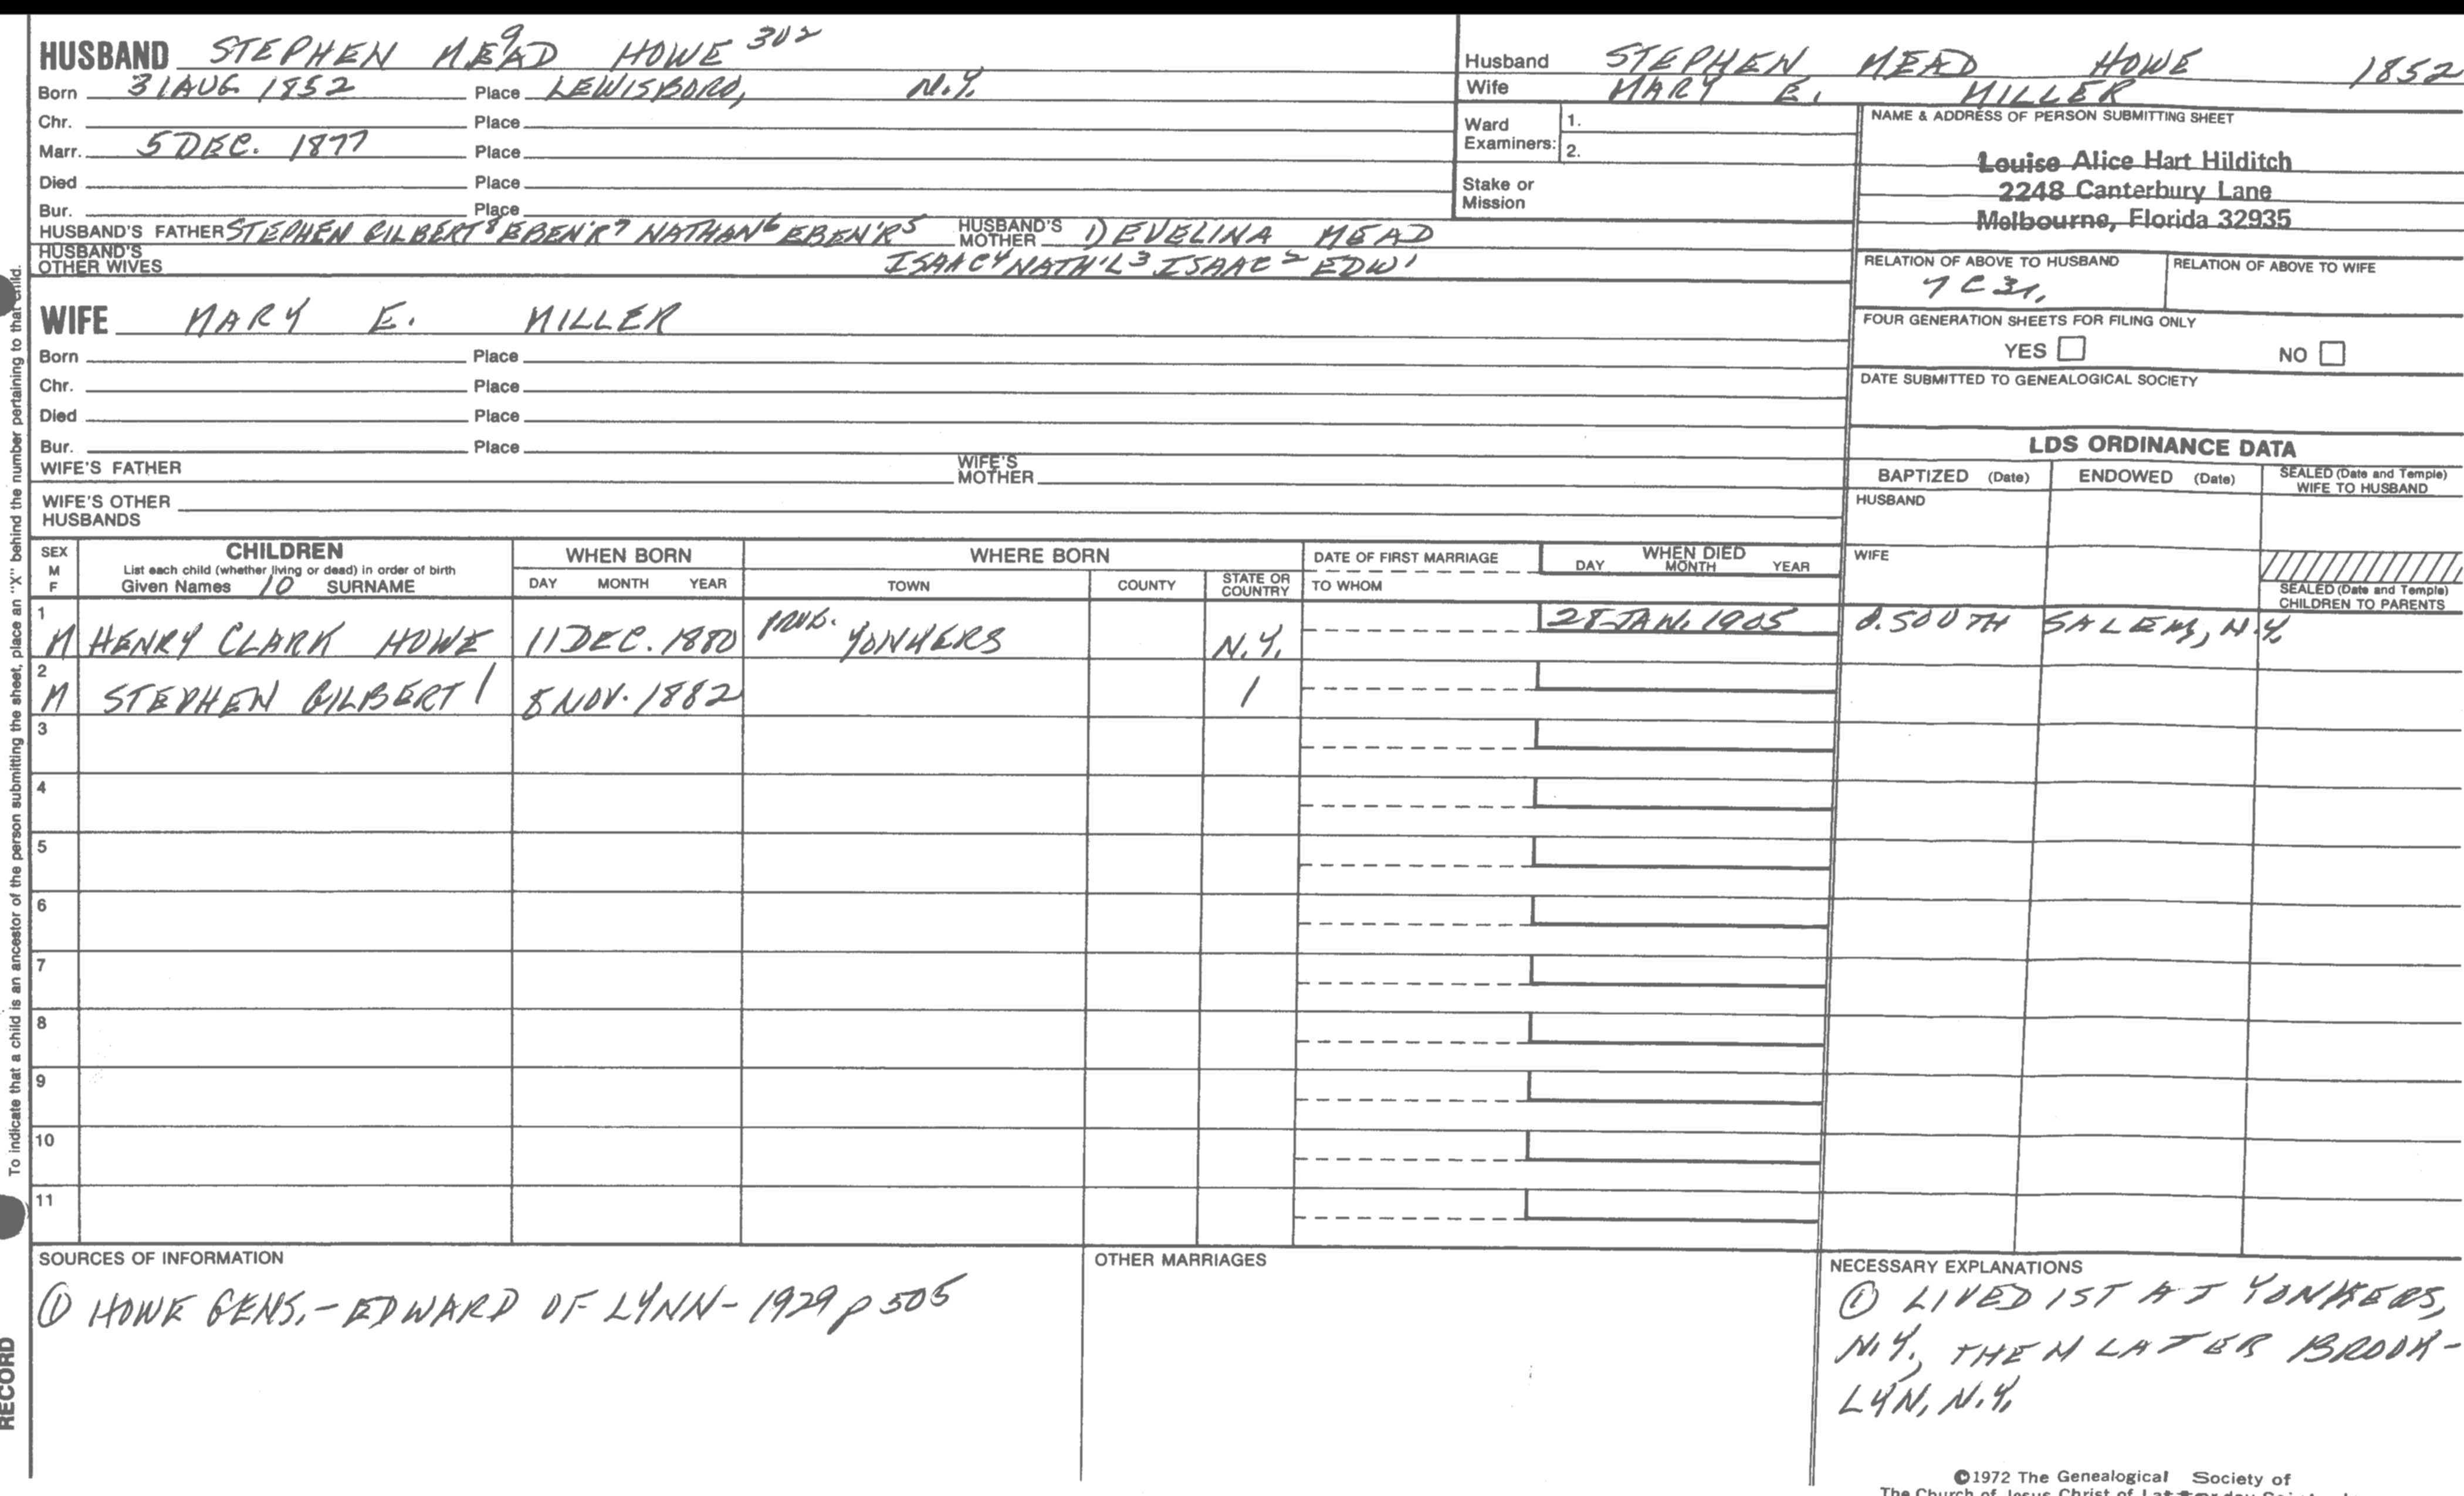 HUSBAND STEPHEN MEAD 9 HOWE 302
Born 31 AUG. 1852 Place LEWISBORO, N.Y.
Chr. Place
Marr. 5 DEC. 1877 Place
Died Place
Bur. Place
HUSBAND'S FATHER STEPHEN GILBERT8 EBEN'R7 NATHAN6 EBEN'R5 HUSBAND'S MOTHER 1) EVELINA MEAD
HUSBAND'S OTHER WIVES ISAAC4 NATH'L3 ISAAC2 EDW1
WIFE MARY E. MILLER
Born Place
Chr. Place
Died Place
Bur. Place
WIFE'S FATHER WIFE'S MOTHER
WIFE'S OTHER HUSBANDS
Husband STEPHEN MEAD HOWE 1852
Wife MARY E. MILLER
Ward Examiners: 1.
2.
Stake or Mission
NAME & ADDRESS OF PERSON SUBMITTING SHEET
Louise Alice Hart Hilditch
2248 Canterbury Lane
Melbourne, Florida 32935
RELATION OF ABOVE TO HUSBAND RELATION OF ABOVE TO WIFE
7 C 3r.
FOUR GENERATION SHEETS FOR FILING ONLY
YES NO
DATE SUBMITTED TO GENEALOGICAL SOCIETY
LDS ORDINANCE DATA
BAPTIZED (Date) ENDOWED (Date) SEALED (Date and Temple) WIFE TO HUSBAND
HUSBAND
WIFE
SEALED (Date and Temple) CHILDREN TO PARENTS
SEX M F CHILDREN WHEN BORN WHERE BORN DATE OF FIRST MARRIAGE WHEN DIED
List each child (whether living or dead) in order of birth
Given Names 10 SURNAME DAY MONTH YEAR TOWN COUNTY STATE OR COUNTRY TO WHOM DAY MONTH YEAR
1 M HENRY CLARK HOWE 11 DEC. 1880 PROB. YONKERS N.Y. 28 JAN. 1905 d. SOUTH SALEM, N.Y.
2 M STEPHEN GILBERT / 8 NOV. 1882 /
3
4
5
6
7
8
9
10
11
SOURCES OF INFORMATION
① HOWE GENS. - EDWARD OF LYNN - 1929 p 505
OTHER MARRIAGES
NECESSARY EXPLANATIONS
① LIVED 1ST AT YONKERS,
N.Y., THEN LATER BROOK-
LYN, N.Y.
©1972 The Genealogical Society of
The Church of Jesus Christ of Latter-day
To indicate that a child is an ancestor of the person submitting the sheet, place an "X" behind the number pertaining to that child.
RECORD